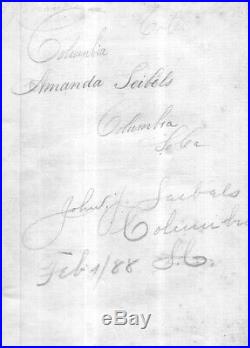 Columbia
Amanda Seibels
Columbia
So Ca
John J. Seibels
Columbia
Feb 1/88 S.C.
ebay